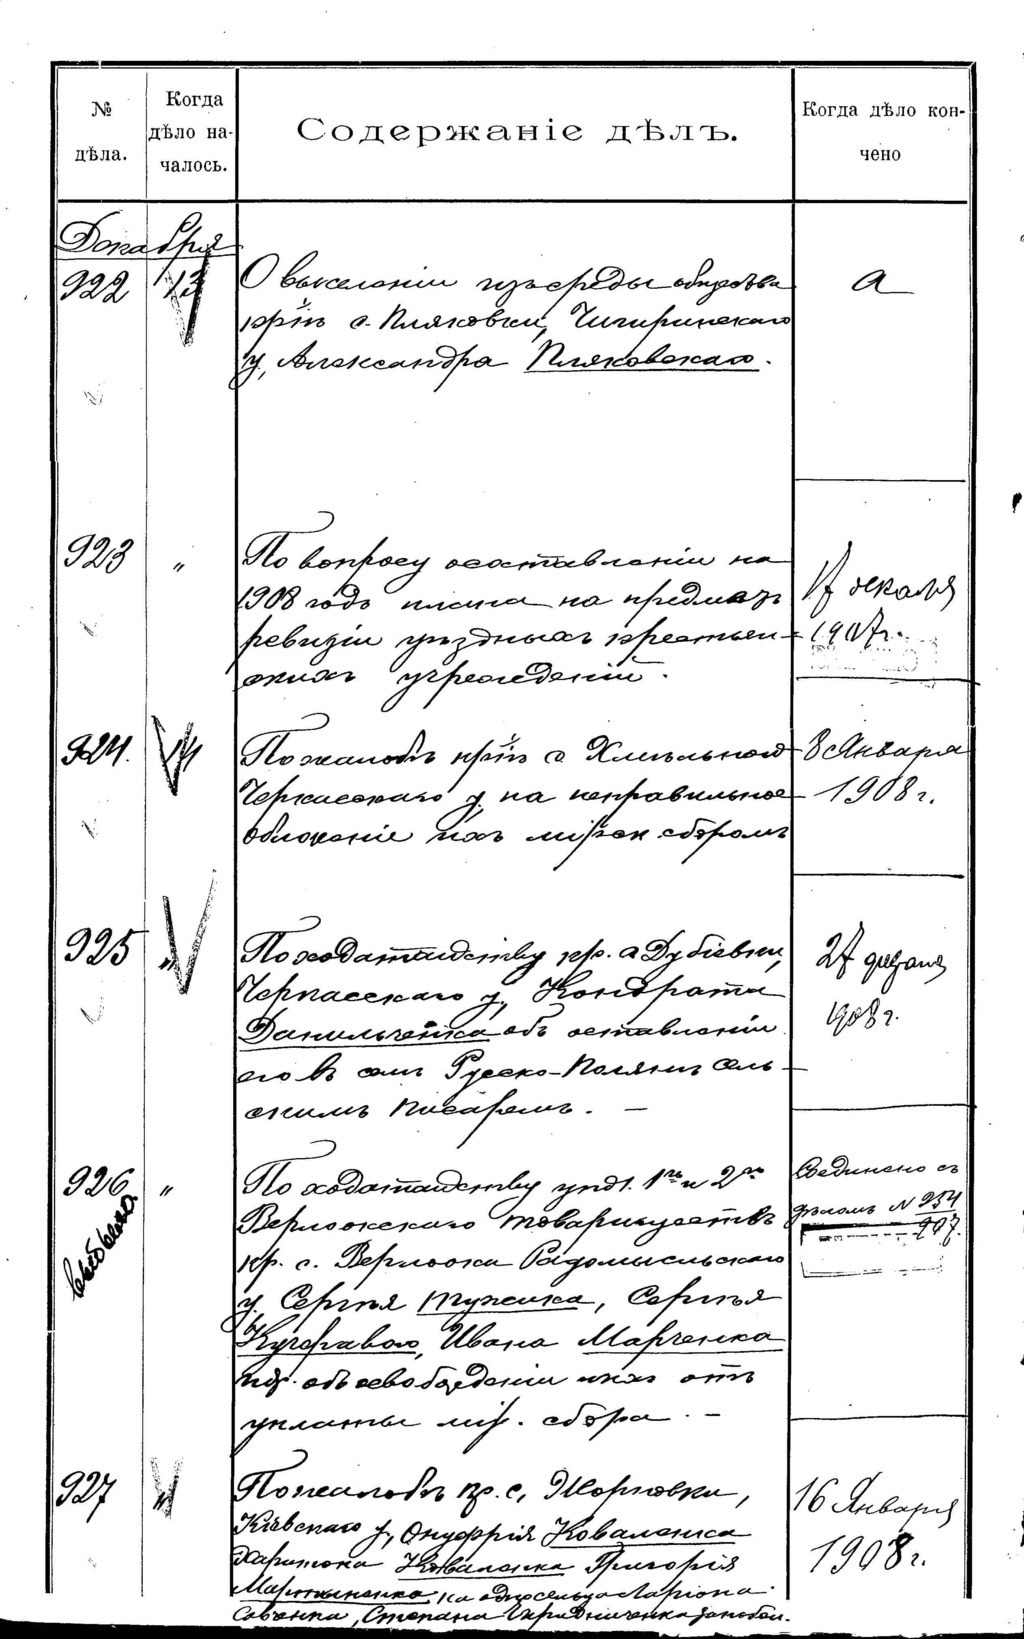 № дѣла.
Когда дѣло началось.
Содержаніе дѣлъ.
Когда дѣло кончено
Декабря
922 13 О выселеніи изъ среды общества
крᵗнъ с. Пляковки, Чигиринскаго
у, Александра Пляковскаго.
923 „ По вопросу о составленіи на
1908 годъ плана на предметъ
ревизіи уѣздныхъ крестьян-
скихъ учрежденій.
17 декабря
1907 г.
924. 14 По жалобѣ крᵗнъ с. Хмѣльного
Черкасскаго у, на неправильное
обложеніе ихъ мірск. сборомъ
8 Января
1908 г.
925 „ По ходатайству кр. с. Дубіевки,
Черкасскаго у, Кондрата
Данильченка объ оставленіи
его въ сел. Русско-Полянѣ сель-
скимъ писаремъ. —
27
1908 г.
926 „ По ходатайству упол. 1ᵍᵒ и 2ᵍᵒ
Верлоокскаго товариществъ
кр. с. Верлоока Радомысльскаго
у. Сергѣя Мужика, Сергѣя
Кучераваго, Ивана Марченка
и др. объ освобожденіи ихъ отъ
уплаты мір. сбора. —
Соединено съ
дѣломъ N 954
907.
927 „ По жалобѣ кр. с. Жорновки,
Кіевскаго у, Онуфрія Коваленка
Харитона Коваленка Григорія
Мартыненка, на односельца Ларіона
Савченка, Степана
16 Января
1908 г.